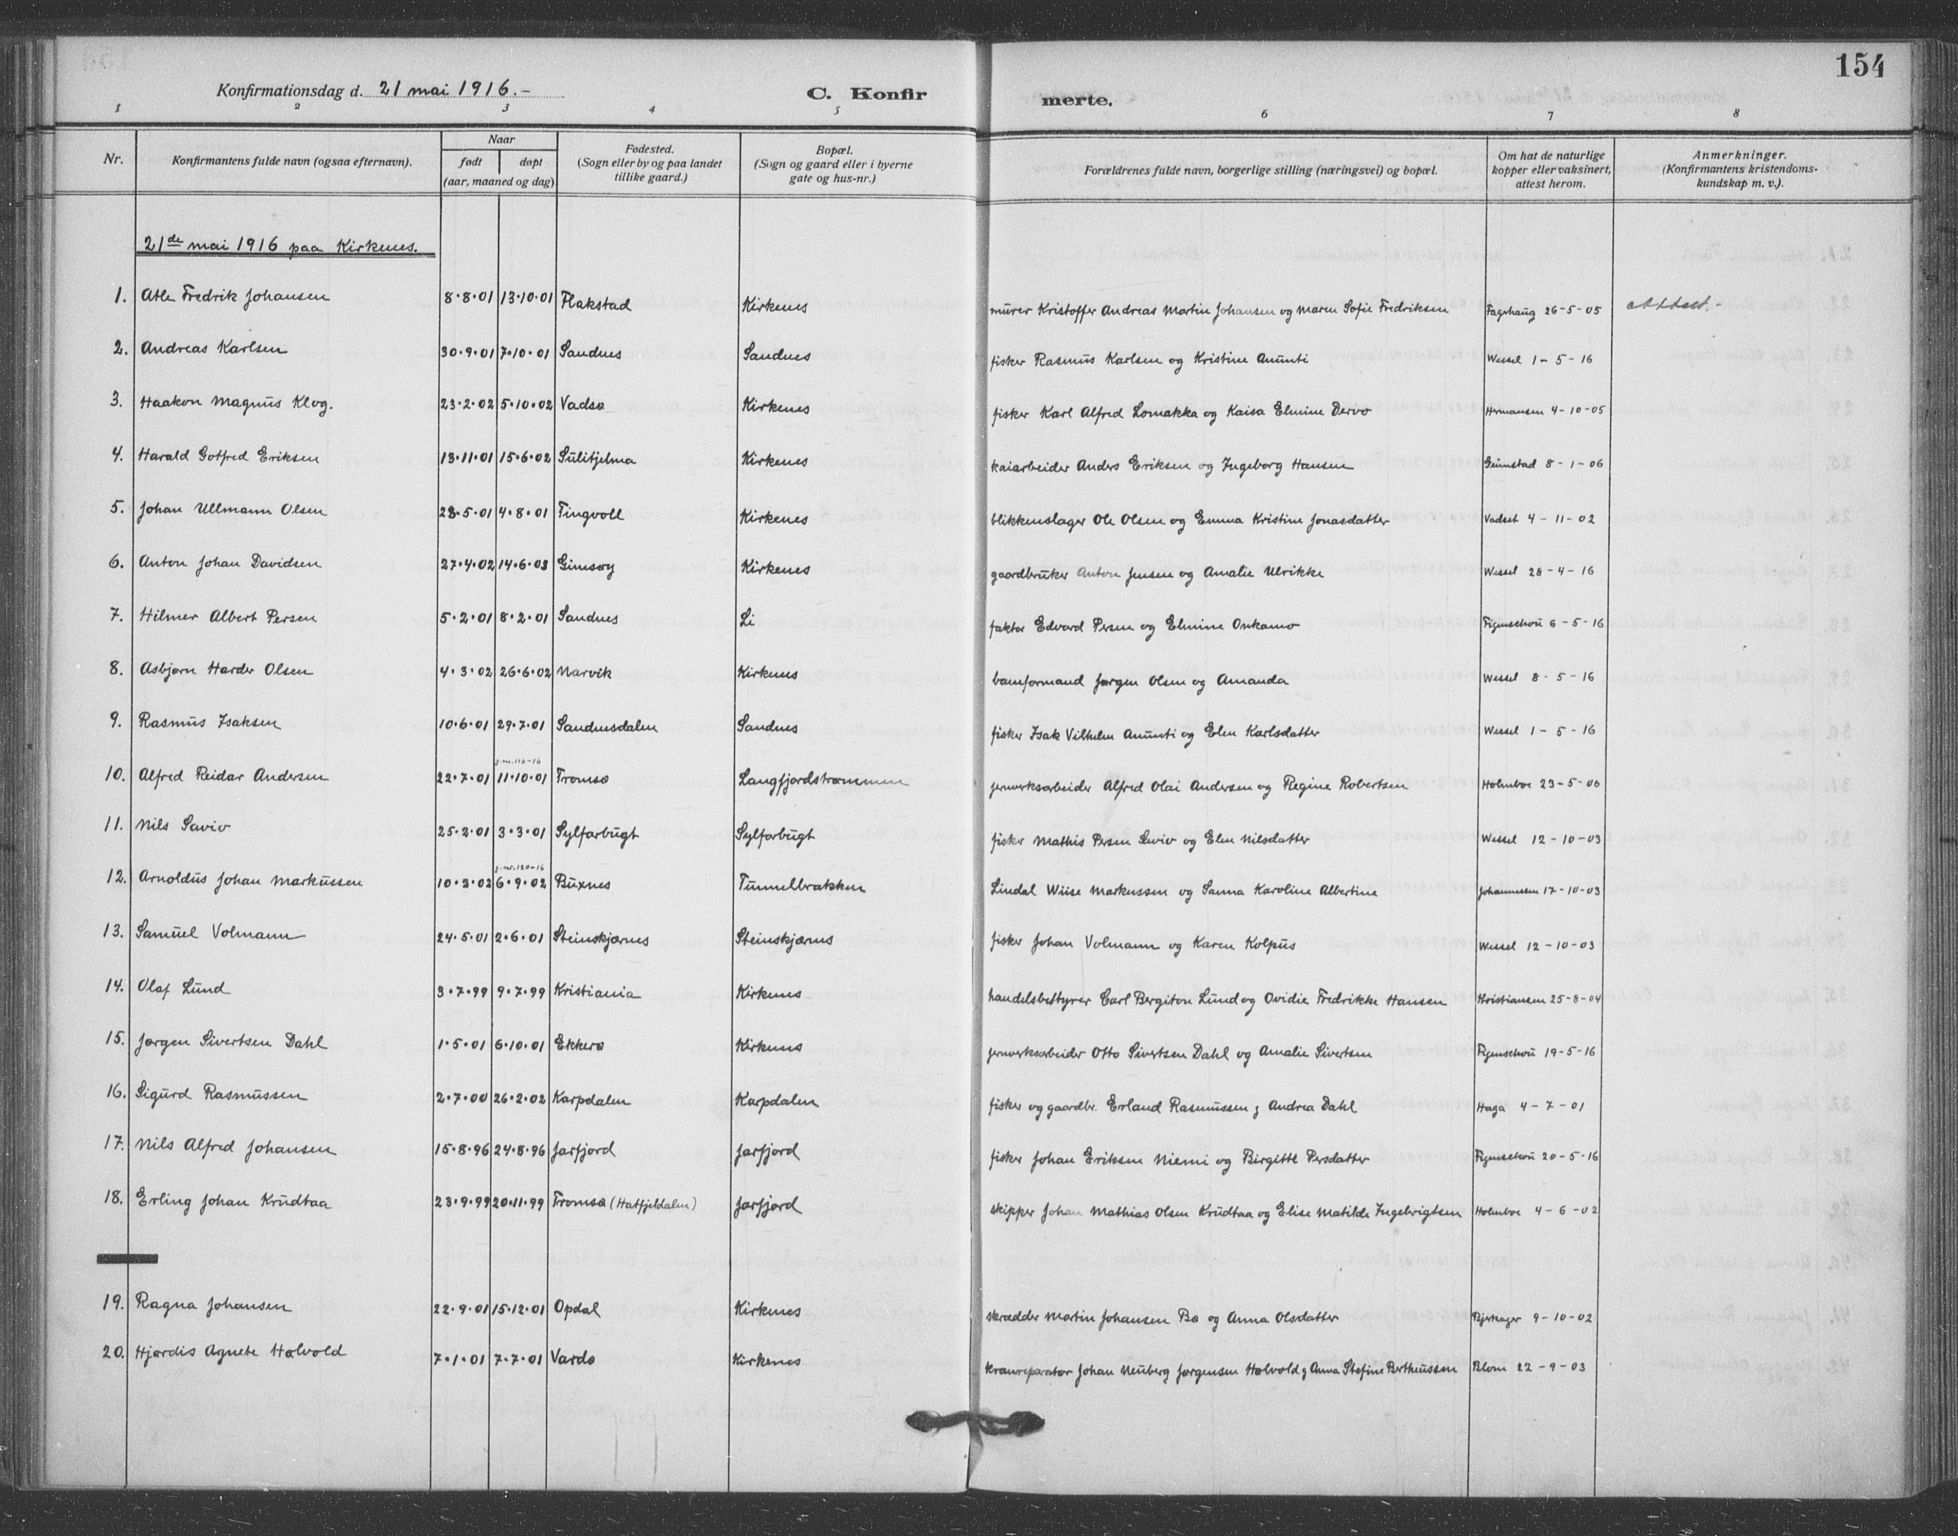 154
Konfirmationsdag d. 21 mai 1916.-
C. Konfirmerte.
1 2 3 4 5 6 7 8
Nr. | Konfirmantens fulde navn (ogsaa efternavn). | Naar født | døpt (aar, maaned og dag) | Fødested. (Sogn eller by og paa landet tillike gaard.) | Bopæl. (Sogn og gaard eller i byerne gate og hus-nr.) | Forældrenes fulde navn, borgerlige stilling (næringsvei) og bopæl. | Om hat de naturlige kopper eller vaksinert, attest herom. | Anmerkninger. (Konfirmantens kristendoms-kundskap m. v.).
21de mai 1916 paa Kirkenes.
1. Atle Fredrik Johansen 8.8.01 13.10.01 Flakstad Kirkenes murer Kristoffer Andreas Martin Johansen og Maren Sofie Fredriksen Fagerhaug 26-5-05 Attest.
2. Andreas Karlsen 30.9.01 7.10.01 Sandnes Sandnes fisker Rasmus Karlsen og Kristine Anunti Wessel 1-5-16
3. Haakon Magnus Klog. 23.2.02 5.10.02 Vadsø Kirkenes fisker Karl Alfred Lomakka og Kaisa Elmine Dervo Hermansen 4-10-05
4. Harald Gotfred Eriksen 13.11.01 15.6.02 Sulitjelma Kirkenes kaiarbeider Anders Eriksen og Ingeborg Hansen Geimstad 8-1-06
5. Johan Ullmann Olsen 28.5.01 4.8.01 Tingvoll Kirkenes blikkenslager Ole Olsen og Emma Kristine Jonasdatter Vadset 4-11-02
6. Anton Johan Davidsen 27.4.02 14.6.03 Gimsøy Kirkenes gaardbruker Anton Jensen og Amalie Ulrikke Wessel 28-4-16
7. Hilmer Albert Persen 5.2.01 8.2.01 Sandnes Li faktor Edvard Persen og Elmine Onkamo Figenschou 6-5-16
8. Asbjørn Harder Olsen 4.3.02 26.6.02 Narvik Kirkenes banformand Jørgen Olsen og Amanda Wessel 8-5-16
9. Rasmus Isaksen 10.6.01 29.7.01 Sandnesdalen Sandnes fisker Isak Vilhelm Anunti og Elen Karlsdatter Wessel 1-5-16
j.nr.116-16
10. Alfred Reidar Andersen 22.7.01 11.10.01 Tromsø Langfjordstrømmen jernverksarbeider Alfred Olai Andersen og Regine Robertsen Holmboe 23-5-06
11. Nils Savio 25.2.01 3.3.01 Sylfarbugt Sylfarbugt fisker Mathis Persen Savio og Elen Nilsdatter Wessel 12-10-03
j.nr.120-16
12. Arnoldus Johan Markussen 10.2.02 6.9.02 Buxnes Tunnelbratsken Lindal Wiise Markussen og Sanna Karoline Albertine Johannessen 17-10-03
13. Samuel Volmann 24.5.01 2.6.01 Steinskjærnes Steinskjærnes fisker Johan Volmann og Karen Kolpus Wessel 12-10-03
14. Olaf Lund 3.7.99 9.7.99 Kristiania Kirkenes handelsbestyrer Carl Bergiton Lund og Ovidie Fredrikke Hansen Kristiansen 25-8-04
15. Jørgen Sivertsen Dahl 1.5.01 6.10.01 Ekkerø Kirkenes jernverksarbeider Otto Sivertsen Dahl og Amalie Sivertsen Figenschou 19-5-16
16. Sigurd Rasmussen 2.7.00 26.2.02 Karpdalen Karpdalen fisker og gaardbr. Erland Rasmussen g Andrea Dahl Haga 4-7-01
17. Nils Alfred Johansen 15.8.96 24.8.96 Jarfjord Jarfjord fisker Johan Eriksen Niemi og Birgitte Persdatter Figenschou 20-5-16
18. Erling Johan Krudtaa 23.9.99 20.11.99 Tromsø (Hatfjeldalen) Jarfjord skipper Johan Mathias Olsen Krudtaa og Elise Matilde Ingebrigtsen Holmboe 4-6-02
19. Ragna Johansen 22.9.01 15.12.01 Opdal Kirkenes skrædder Martin Johansen Bø og Anna Olsdatter Bjerkager 9-10-02
20. Hjørdis Agnete Holvold 7.1.01 7.7.01 Vardø Kirkenes kranreparatør Johan Neuberg Jørgensen Holvold g Anna Stefine Bertheussen Blom 22-9-03